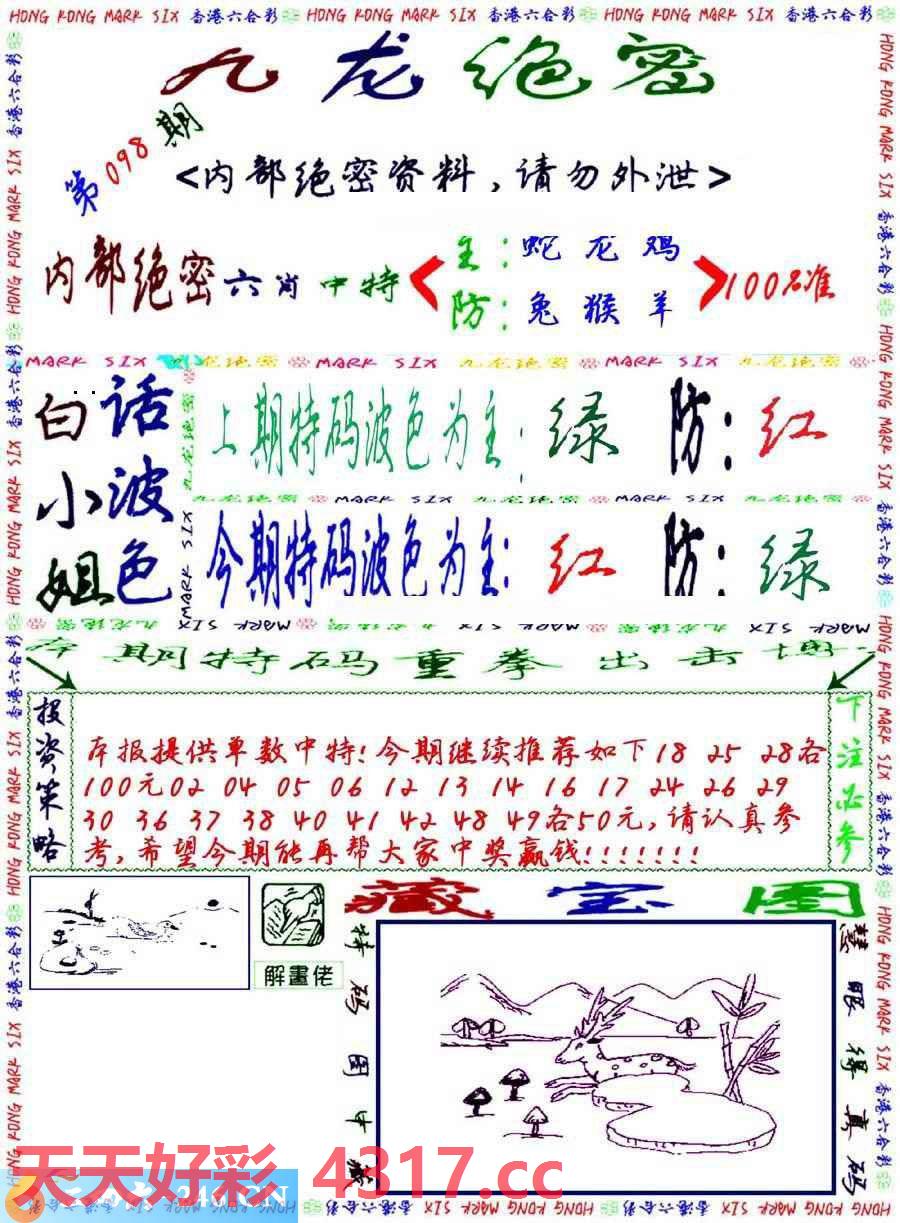 HONG KONG MARK SIX 香港六合彩 HONG KONG MARK SIX 香港六合彩 HONG KONG MARK SIX 香港六合彩 HONG KONG MARK SIX 香港六合彩
九龙绝密
第098期
<内部绝密资料,请勿外泄>
内部绝密六肖中特
主:蛇龙鸡
防:兔猴羊
100%准
MARK SIX 九龙绝密 MARK SIX 九龙绝密 MARK SIX 九龙绝密
白话
小波
姐色
上期特码波色为主:绿 防:红
九龙绝密 MARK SIX 九龙绝密 MARK SIX 九龙绝密
今期特码波色为主:红 防:绿
九龙绝密 MARK SIX 九龙绝密 MARK SIX 九龙绝密 MARK SIX
本期特码重拳出击
投资策略
本报提供单数中特!今期继续推荐如下18 25 28各
100元02 04 05 06 12 13 14 16 17 24 26 29
30 36 37 38 40 41 42 48 49各50元,请认真参
考,希望今期能再帮大家中奖赢钱!!!!!!!
下注必参
藏宝图
解畫佬
特码图中藏
慧眼得真码
天天好彩 4317.cc
246.CN